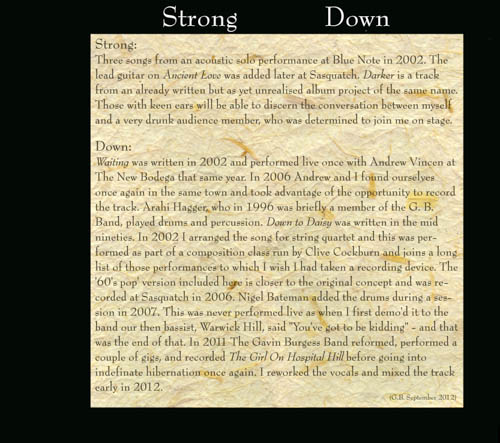 Strong Down
Strong:
Three songs from an acoustic solo performance at Blue Note in 2002. The
lead guitar on Ancient Love was added later at Sasquatch. Darker is a track
from an already written but as yet unrealised album project of the same name.
Those with keen ears will be able to discern the conversation between myself
and a very drunk audience member, who was determined to join me on stage.
Down:
Waiting was written in 2002 and performed live once with Andrew Vincen at
The New Bodega that same year. In 2006 Andrew and I found ourselves
once again in the same town and took advantage of the opportunity to record
the track. Arahi Hagger, who in 1996 was briefly a member of the G. B.
Band, played drums and percussion. Down to Daisy was written in the mid
nineties. In 2002 I arranged the song for string quartet and this was per-
formed as part of a composition class run by Clive Cockburn and joins a long
list of those performances to which I wish I had taken a recording device. The
'60's pop' version included here is closer to the original concept and was re-
corded at Sasquatch in 2006. Nigel Bateman added the drums during a ses-
sion in 2007. This was never performed live as when I first demo'd it to the
band our then bassist, Warwick Hill, said "You've got to be kidding" - and that
was the end of that. In 2011 The Gavin Burgess Band reformed, performed a
couple of gigs, and recorded The Girl On Hospital Hill before going into
indefinate hibernation once again. I reworked the vocals and mixed the track
early in 2012.
(G.B. September 2012)